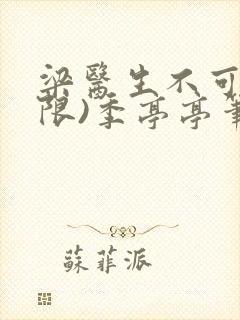 梁醫生不可
限)季亭亭筆
蘇菲派